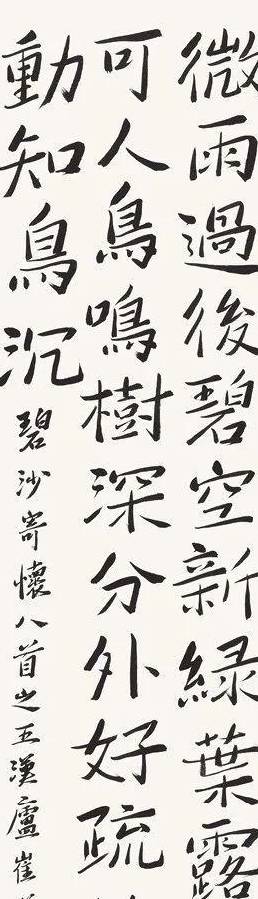 微雨過後碧空新綠葉露
可人鳥鳴樹深分外好疏
動知鳥沉
碧沙寄懷八首之五漢廬崔